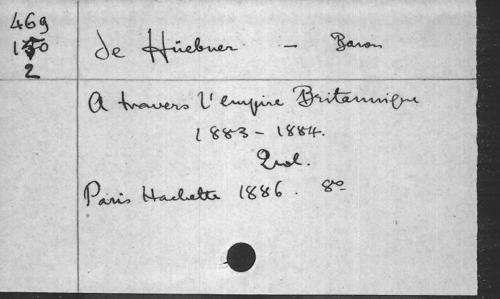 469
150
2
de Hüebner - Baron
A travers l'empire Britannique
1883-1884.
2 vol.
Paris Hachette 1886. 8º